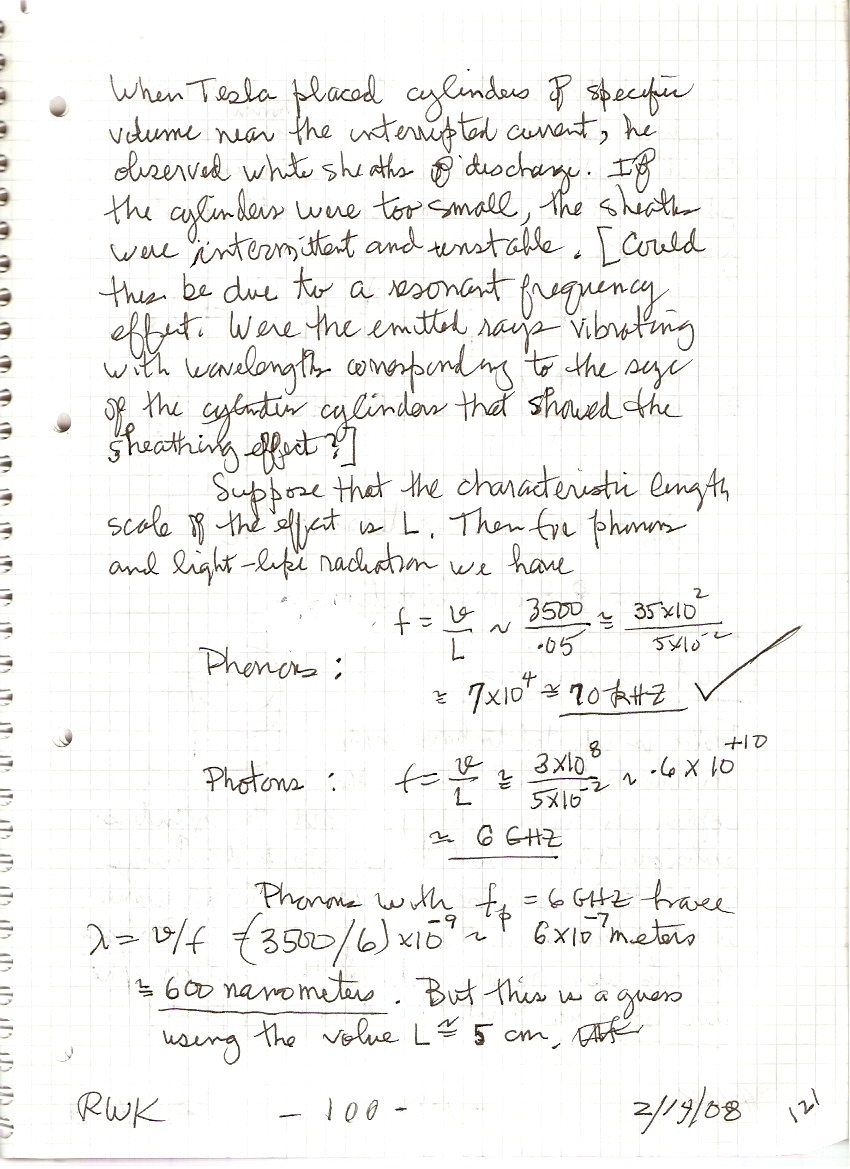 When Tesla placed cylinders of specific
volume near the interrupted current, he
observed white sheaths of discharge. If
the cylinders were too small, the sheaths
were intermittent and unstable. [Could
this be due to a resonant frequency
effect. Were the emitted rays vibrating
with wavelengths corresponding to the size
of the cylinders that showed the
sheathing effect?]
Suppose that the characteristic length
scale of the effect is L. Then for phonons
and light-like radiation we have
Phonons : f = v/L ~ 3500/.05 ≅ 35×10²/5×10⁻²
≅ 7×10⁴ ≅ 70 kHZ ✓
Photons : f = v/L ≅ 3×10⁸/5×10⁻² ~ .6 × 10⁺¹⁰
≃ 6 GHZ
Phonons with fₚ = 6 GHZ have
λ = v/f = (3500/6)×10⁻⁹ ~ 6×10⁻⁷ meters
≅ 600 nanometers. But this is a guess
using the value L ≅ 5 cm.
RWK - 100 - 2/19/08 121